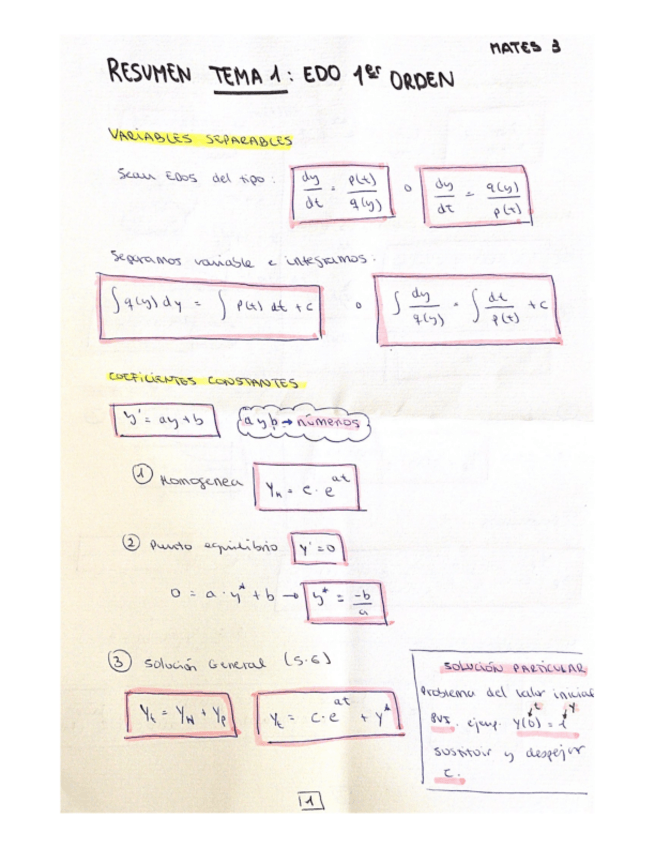 MATES 3
RESUMEN TEMA 1: EDO 1er ORDEN
VARIABLES SEPARABLES
Sean EDOs del tipo: dy/dt = p(t)/q(y) o dy/dt = q(y)/p(t)
Separamos variable e integramos:
∫q(y) dy = ∫ p(t) dt + c o ∫ dy/q(y) = ∫ dt/p(t) + c
COEFICIENTES CONSTANTES
y' = ay + b a y b → números
① Homogenea Y_H = c · e^{at}
② Punto equilibrio y' = 0
0 = a · y* + b → y* = -b/a
③ Solución General (S.G)
Y_t = Y_H + Y_P Y_t = c · e^{at} + y*
SOLUCIÓN PARTICULAR
Problema del valor inicial
t y
PVI. ejemp. y(0) = 1
sustituir y despejar
c.
1